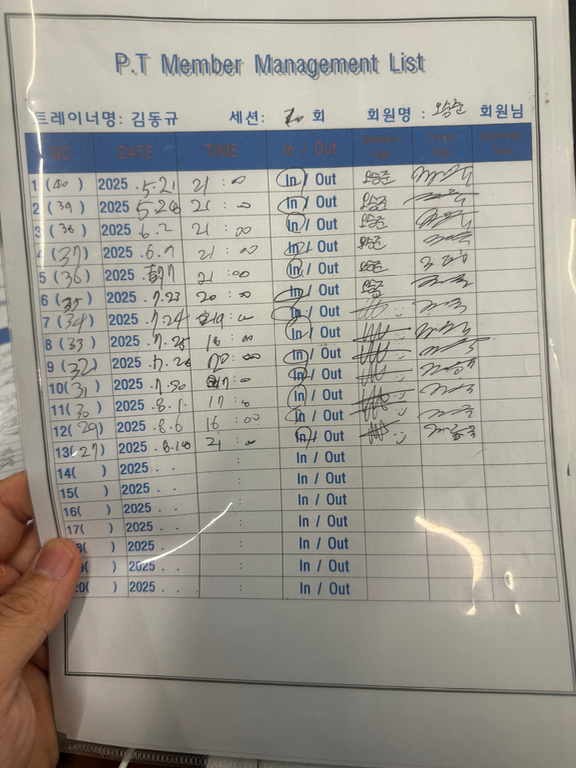 P.T Member Management List
트레이너명: 김동규 세션: 회 회원명 : 오승준 회원님
NO DATE TIME In / Out
1 (40) 2025 .5.21 21 : 00 In / Out 오승준
2 (39) 2025 .5.28 21 : 00 In / Out 오승준
3 (38) 2025 .6.2 21 : 00 In / Out 오승준
4 (37) 2025 .6.9 21 : 00 In / Out 오승준
5 (36) 2025 21 : 00 In / Out 오승준
6 (35) 2025 .7.23 20 : 00 In / Out 오승준
7 (34) 2025 .7.24 : 00 In / Out
8 (33) 2025 .7.25 16 : 00 In / Out
9 (32) 2025 .7.28 : 00 In / Out
10(31) 2025 .7.30 : 00 In / Out
11(30) 2025 .8.1 17 : 0 In / Out
12(29) 2025 .8.6 16 : 00 In / Out
13(27) 2025 .8.18 21 : 00 In / Out
14( ) 2025 . . : In / Out
15( ) 2025 . . : In / Out
16( ) 2025 . . : In / Out
17( ) 2025 . . : In / Out
8( ) 2025 . . : In / Out
9( ) 2025 . . : In / Out
20( ) 2025 . . : In / Out